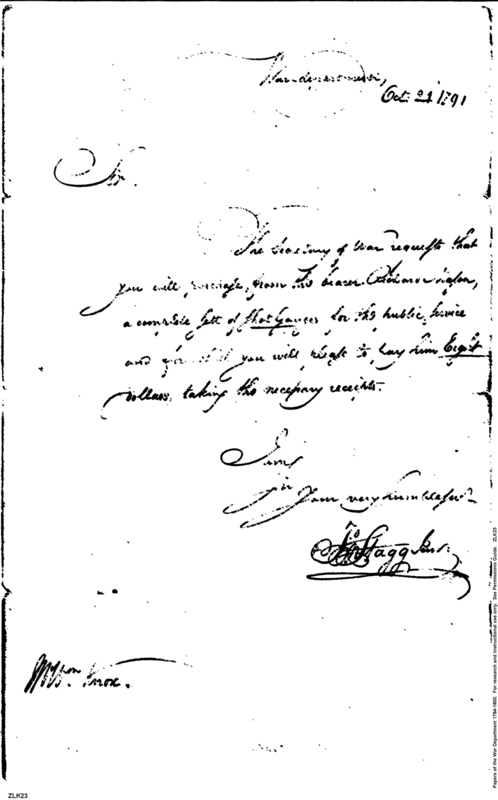 War department,
Oct 21 1791
Sir.
The Secretary of War requests that
you will purchase, from the bearer Richard
a complete sett of Shot Gauges for the public service
and for which you will please to pay him Eight
dollars, taking the necessary receipts.
I am
sir
Your very humble serv.t
Jno Stagg Junr.
Wm Knox.
ZLK23
Papers of the War Department 1784-1800. For research and instructional use only. See Permissions Guide. ZLK23